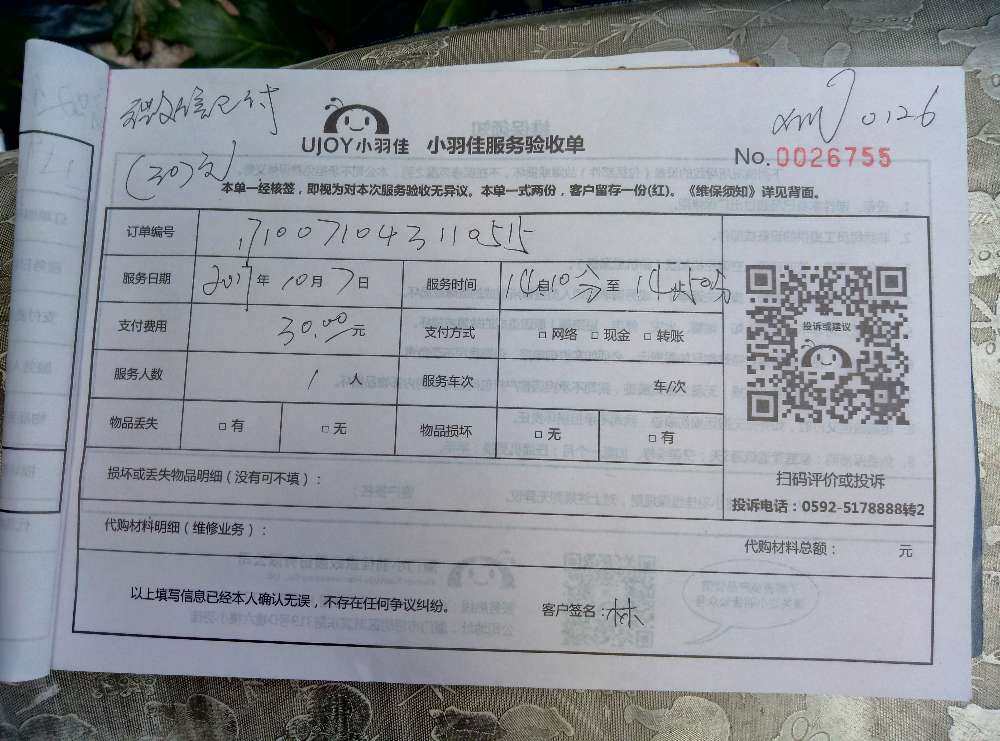 微信已付
xm 0126
UJOY小羽佳 小羽佳服务验收单
(30元)
No. 0026755
本单一经核签，即视为对本次服务验收无异议。本单一式两份，客户留存一份(红)。《维保须知》详见背面。
订单编号 1710071043110515
服务日期 2017年10月7日 服务时间 14自10分至14止50分
支付费用 30.00元 支付方式 □ 网络 □ 现金 □ 转账
投诉或建议
服务人数 1 人 服务车次 车/次
物品丢失 □ 有 □ 无 物品损坏 □ 无 □ 有
损坏或丢失物品明细（没有可不填）：
扫码评价或投诉
投诉电话：0592-5178888转2
代购材料明细（维修业务）：
代购材料总额： 元
以上填写信息已经本人确认无误，不存在任何争议纠纷。 客户签名：林